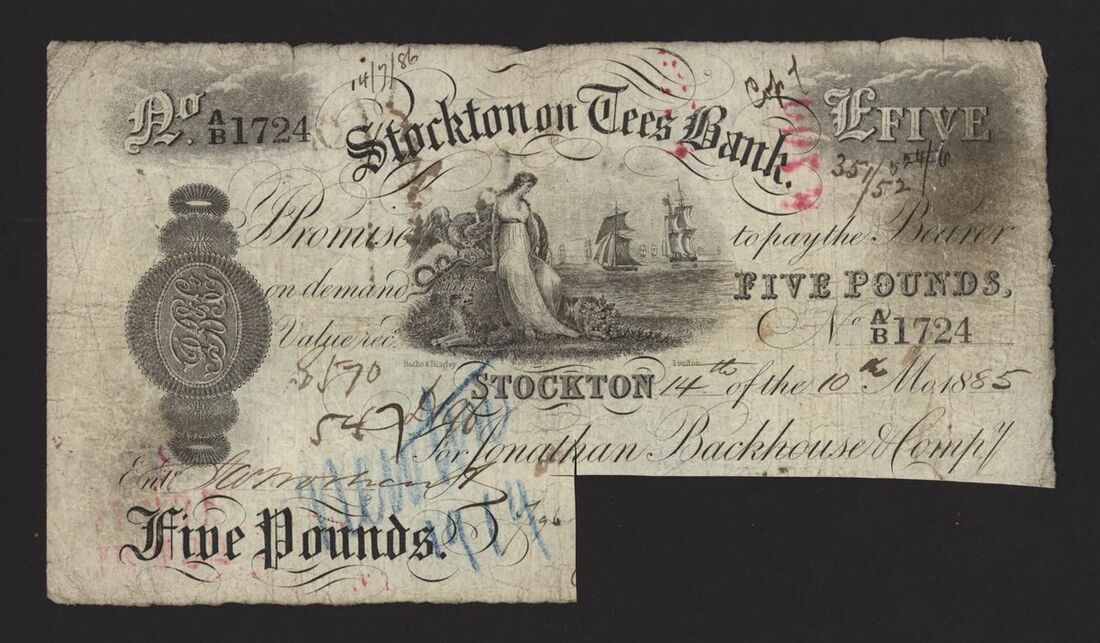 14/7/86
No. A/B 1724
Stockton on Tees Bank.
£FIVE
351/52
I Promise to pay the Bearer
on demand FIVE POUNDS,
Value rec.
No A/B 1724
Bacho & Bingley London
8590
STOCKTON 14th of the 10th Mo. 1885
For Jonathan Backhouse & Compy
Entd
Five Pounds.